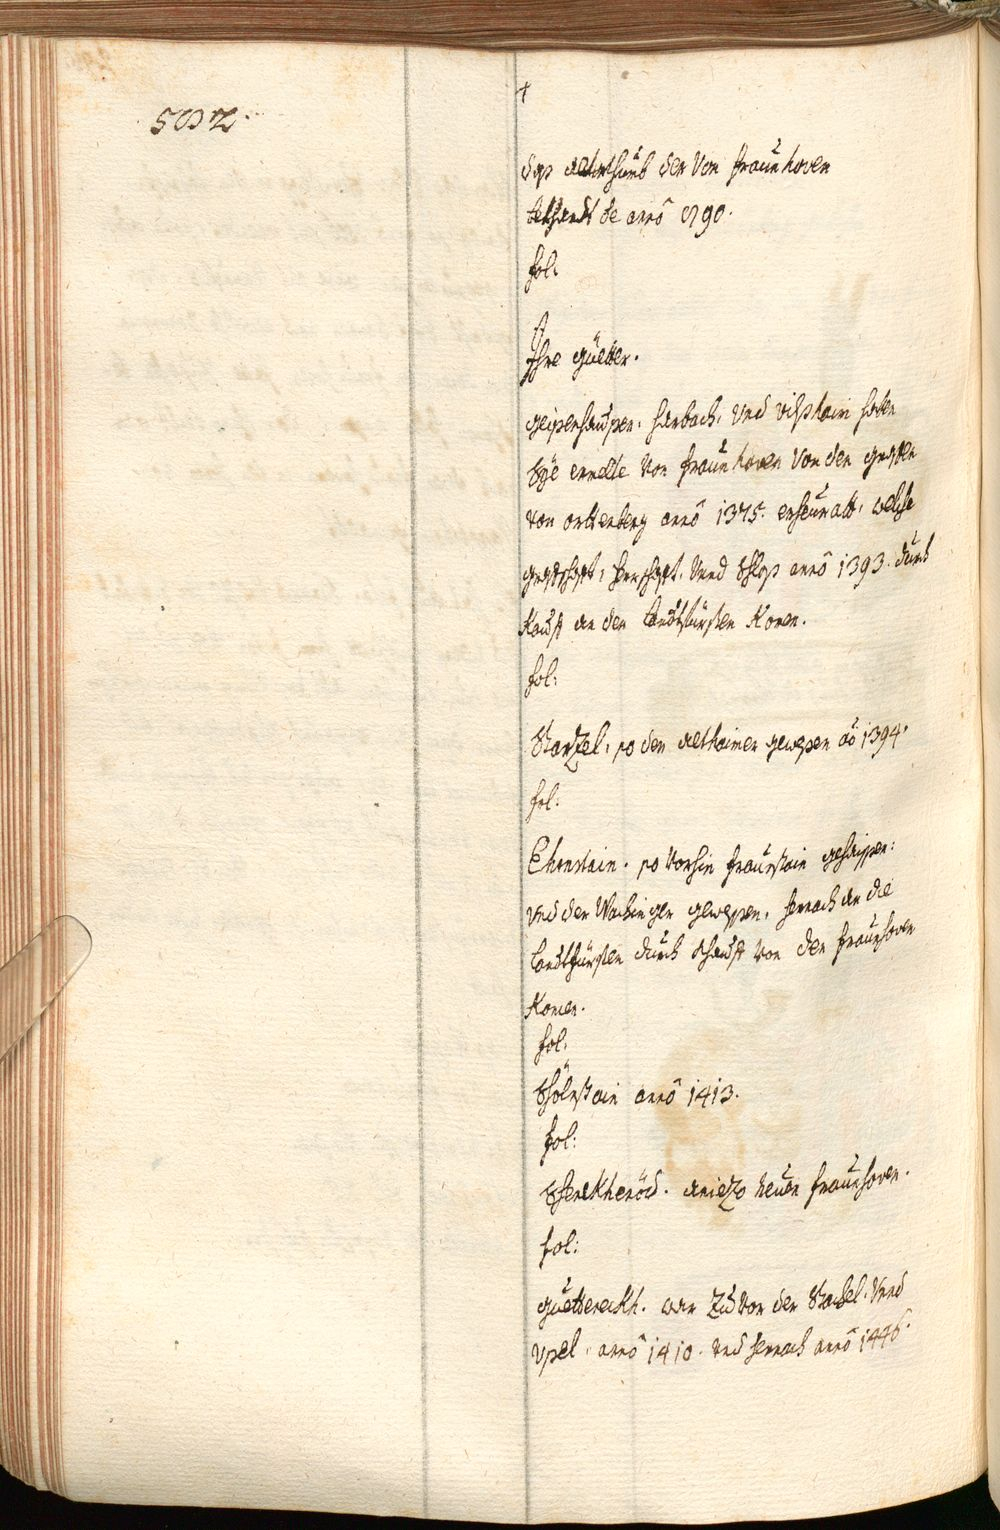 502.
+
das alterthumb der Von fraunhoven
bekandt de anno 790.
fol:
Ihre güetter.
geisenhausen, harbach, Und vilshaim haben
Sÿe ernelte Von fraunhoven Von den grafen
von orttenberg anno 1375. erheuratt, welche
grafschaft, herschaft, Und Schlos anno 1393. durch
Kauft an den landtfürsten Komen.
fol:
so den altheimer gewesen ao 1394.
fol:
Ehrnstain. so vorhin fraunstain gehaissen:
und der Wachinger gewessen, hernach an die
landtfürsten durch Khauft von den fraunhoven
Komen.
fol:
anno 1413.
fol:
aniezo neuen fraunhoven.
fol:
war Zuvor der Und
anno 1410. und hernach anno 1446.